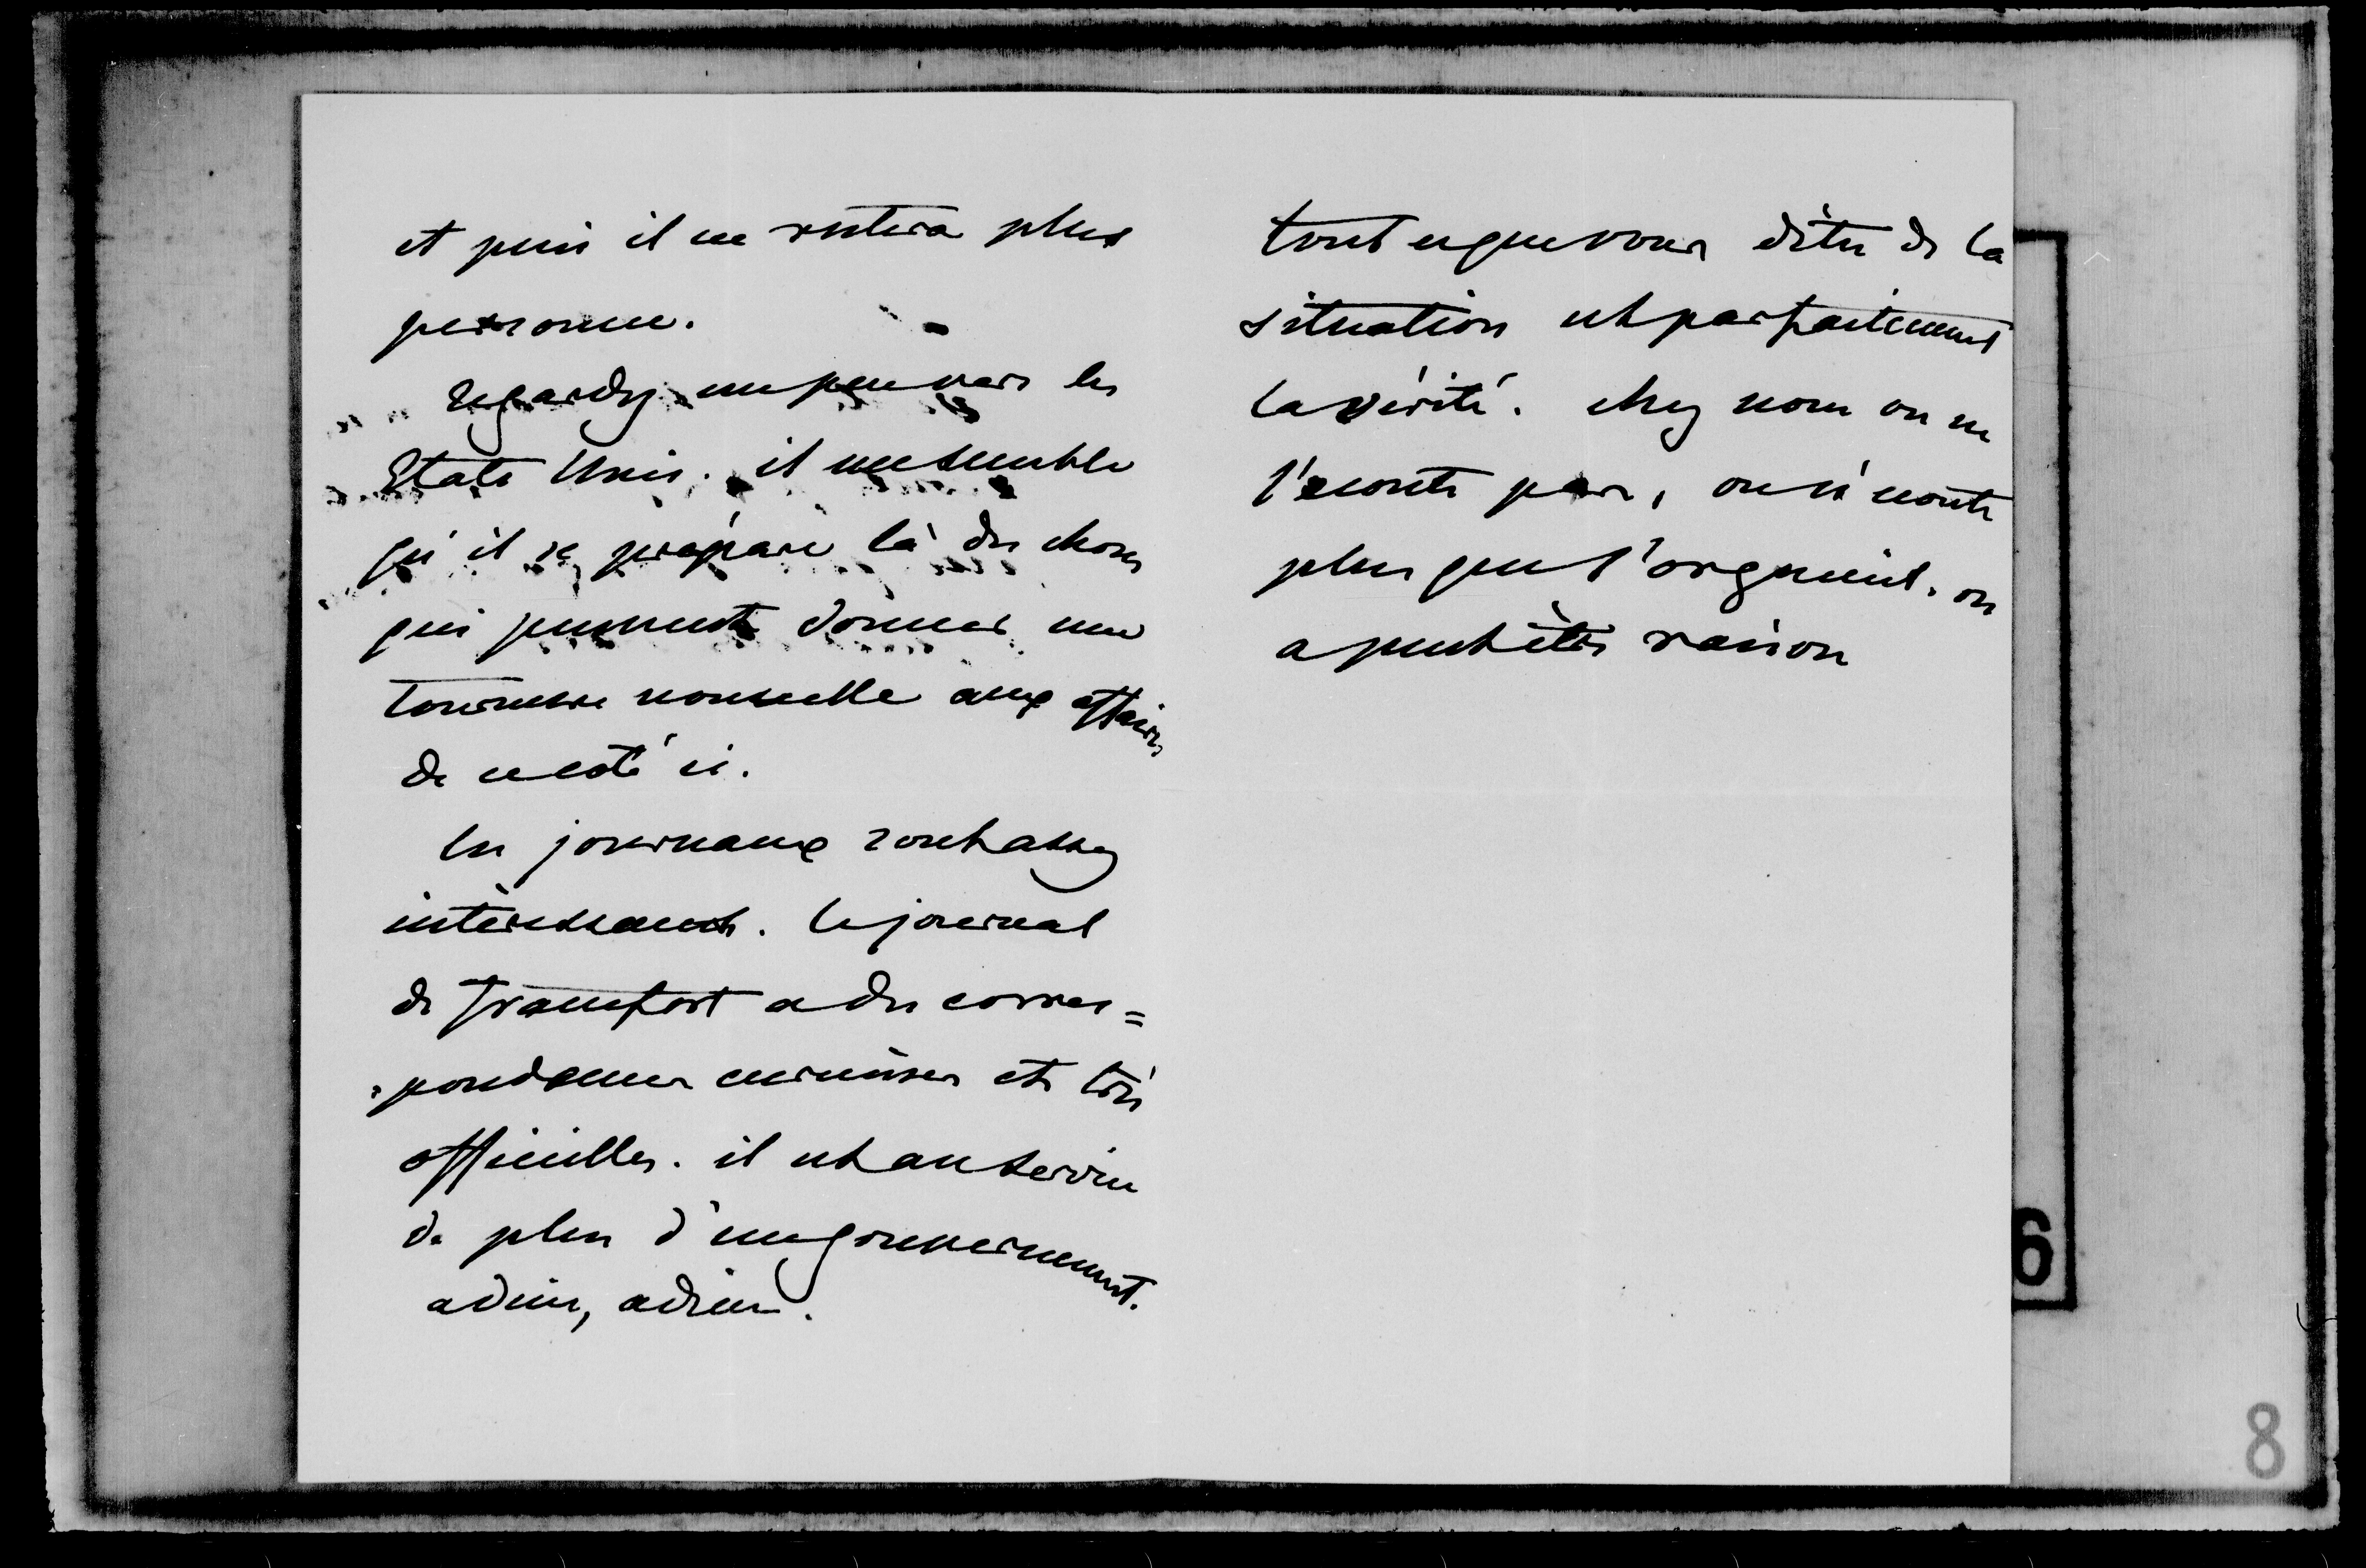 et puis il ne restera plus
personne.
Regardez un peu vers les
Etats Unis. il me semble
qu'il se prépare là des choses
qui peuvent donner une
tournure nouvelle aux affaires
de ce coté ci.
les journaux sont assez
intèressants. le journal
de Francfort a des corres=
=pondances curieuses et très
officielles. il est au service
de plus d'un gouvernement.
adieu, adieu.
tout ce que vous dites de la
situation est parfaitement
la vérité. chez nous on ne
l'ecoute pas, on n'écoute
plus que l'orgueil. on
a peut être raison
6
8